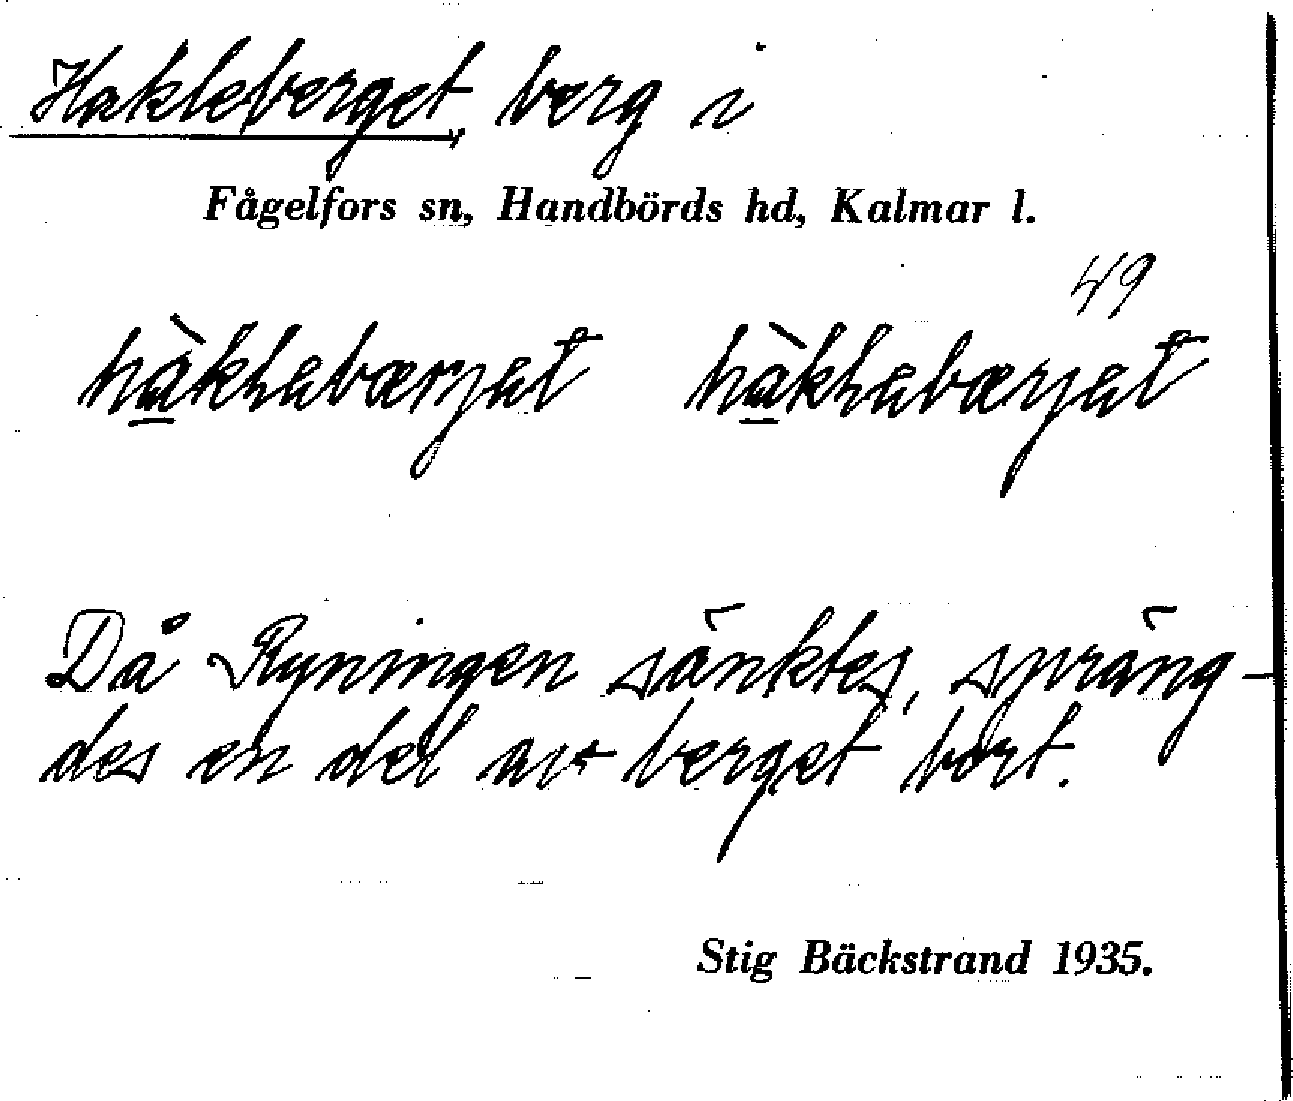 Hakleberget, berg i
Fågelfors sn, Handbörds hd, Kalmar l.
49
hàkləbærjət hàkləbærjət
Då Ryningen sänktes, spräng-
des en del av berget bort.
Stig Bäckstrand 1935.